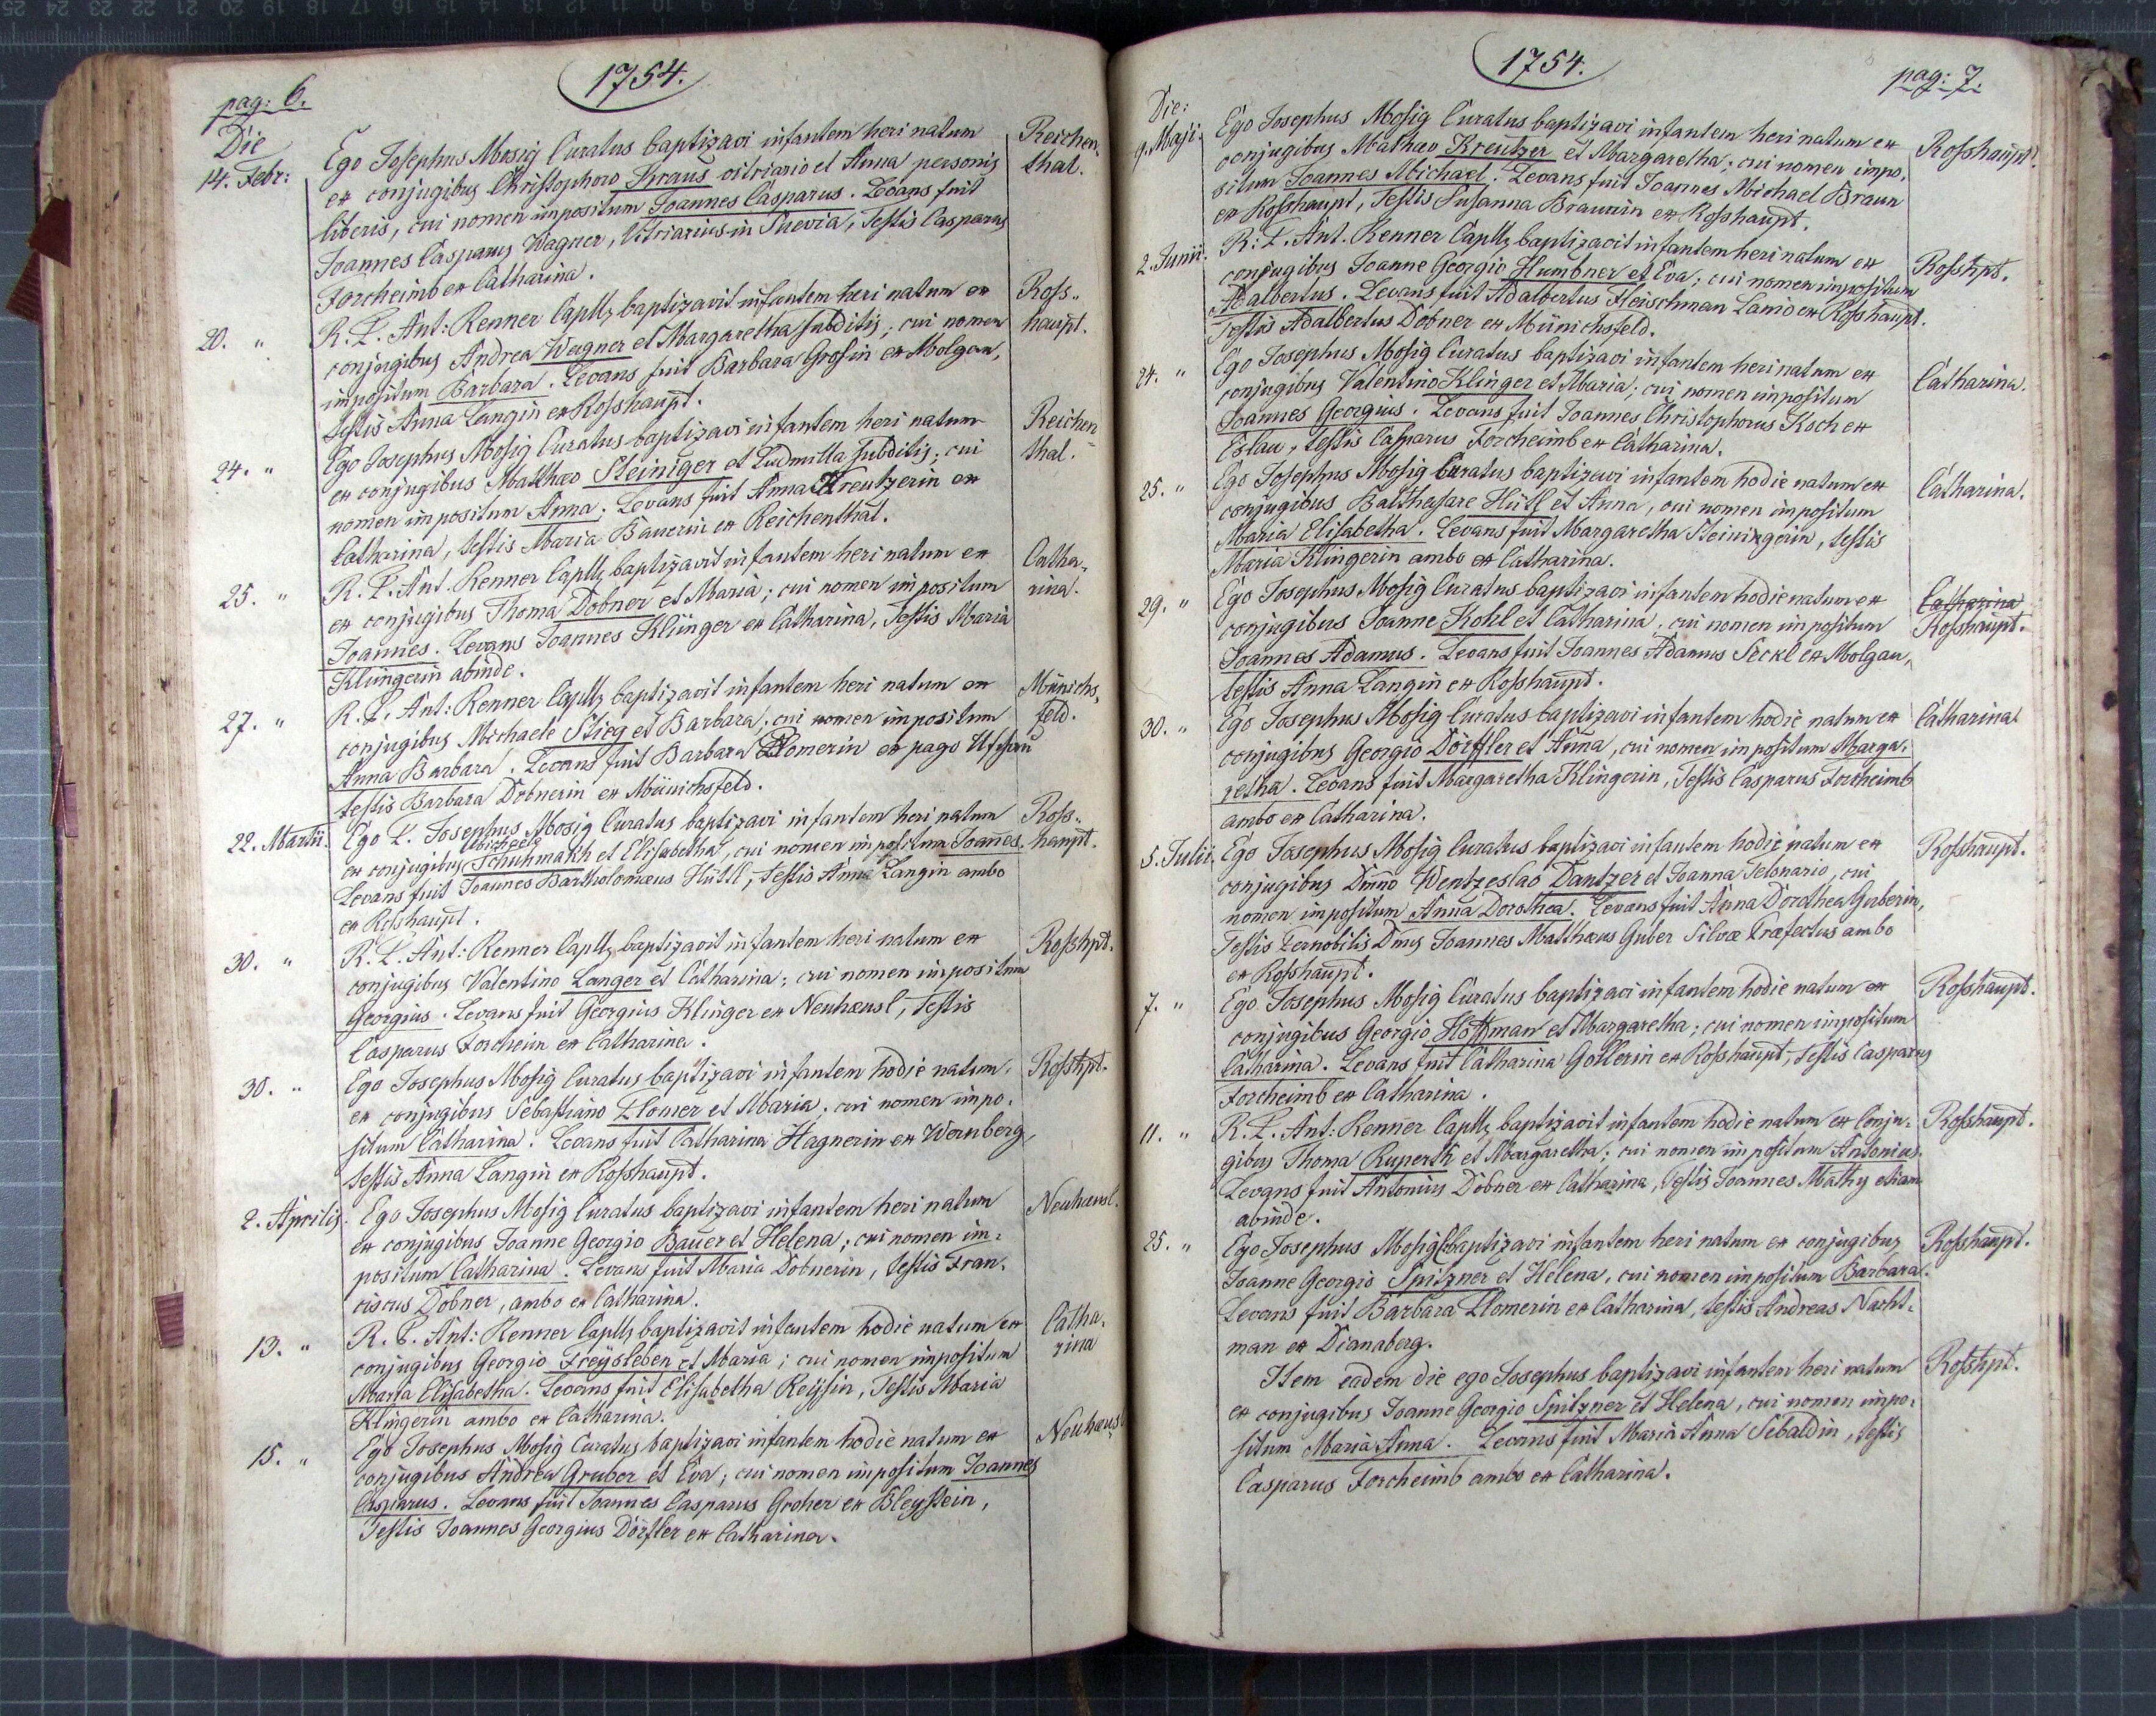 pag: 6.
1754.
Die
14. Febr: Ego Josephus Mosig Curatus baptizavi infantem heri natum Reichen,
ex conjugibus Christophoro Kraus vitriario et Anna personis thal.
liberis, cui nomen impositum Joannes Casparus. Levans fuit
Joannes Casparus Wagner, Vitriarius in Suevia, Testis Casparus
Forcheimb ex Catharina.
20. " R. P. Ant: Renner Capll, baptizavit infantem heri natum ex Ross..
conjugibus Andrea Wagner et Margaretha subditis; cui nomen haupt.
impositum Barbara. Levans fuit Barbara Grosin ex Molgau,
testis Anna Langin ex Rosshaupt.
24. " Ego Josephus Mosig Curatus baptizavi infantem heri natum Reichen=
ex conjugibus Matthæo Steiniger et Ludmilla subditis; cui thal.
nomen impositum Anna. Levans fuit Anna Kreutzerin ex
Catharina, testis Maria Bauerin ex Reichenthal.
25. " R. P. Ant. Renner Capll, baptizavit infantem heri natum ex Catha,
ex conjugibus Thoma Dobner et Maria; cui nomen impositum rina.
Joannes. Levans Joannes Klinger ex Catharina, Testis Maria
Klingerin abinde.
27. " R. P. Ant: Renner Capll, baptizavit infantem heri natum ex Münichs,
conjugibus Michaele Stieg et Barbara, cui nomen impositum feld.
Anna Barbara. Levans fuit Barbara Plomerin ex pago
testis Barbara Dobnerin ex Münichsfeld.
22. Martii. Ego P. Josephus Mosig Curatus baptizavi infantem heri natum Ross..
Michaele
ex conjugibus Schuhmakh et Elisabetha, cui nomen impositum Joannes. haupt.
Levans fuit Joannes Bartholomæus Hütl, testis Anna Langin ambo
ex Rosshaupt.
30. " R. P. Ant: Renner Capll, baptizavit infantem heri natum ex Rosshpt.
conjugibus Valentino Langer et Catharina; cui nomen impositum
Georgius. Levans fuit Georgius Klinger ex Neuhæusl, Testis
Casparus Forcheim ex Catharina.
30. " Ego Josephus Mosig Curatus baptizavi infantem hodie natum. Rosshpt.
ex conjugibus Sebastiano Plomer et Maria. cui nomen impo.
situm Catharina. Levans fuit Catharina Hagnerin ex Wernberg,
testis Anna Langin ex Rosshaupt.
2. Aprilis. Ego Josephus Mosig Curatus baptizavi infantem heri natum Neuhæusl.
ex conjugibus Joanne Georgio Bauer et Helena; cui nomen im=
positum Catharina. Levans fuit Maria Dobnerin, testis Fran.
ciscus Dobner, ambo ex Catharina.
13. " R. P. Ant: Renner Capll, baptizavit infantem hodie natum ex Catha,
conjugibus Georgio Freysleben et Maria; cui nomen impositum rina
Maria Elisabetha. Levans fuit Elisabetha Reysin, Testis Maria
Klingerin ambo ex Catharina.
15. " Ego Josephus Mosig Curatus baptizavi infantem hodie natum ex Neuhæusl
conjugibus Andrea Gruber et Eva; cui nomen impositum Joannes
Casparus. Levans fuit Joannes Casparus Groher ex Bleystein,
Testis Joannes Georgius Dörfler ex Catharina.
1754.
pag: 7.
Die:
9. Maji. Ego Josephus Mosig Curatus baptizavi infantem heri natum ex Rosshaupt.
conjugibus Mathæo Kreutzer et Margaretha; cui nomen impo,
situm Joannes Michael. Levans fuit Joannes Michael Braun
ex Rosshaupt, Testis Susanna Braunin ex Rosshaupt.
2. Junii. R: P. Ant. Renner Capll, baptizavit infantem heri natum ex Rosshpt.
conjugibus Joanne Georgio Humbner et Eva; cui nomen impositum
Adalbertus. Levans fuit Adalbertus Fleischman Lanio ex Rosshaupt.
Testis Adalbertus Dobner ex Münichsfeld.
24. " Ego Josephus Mosig Curatus baptizavi infantem heri natum ex Catharina.
conjugibus Valentino Klinger et Maria; cui nomen impositum
Joannes Georgius. Levans fuit Joannes Christophorus Koch ex
Eslau, testis Casparus Forcheimb ex Catharina.
25. " Ego Josephus Mosig Curatus baptizavi infantem hodie natum ex Catharina.
conjugibus Balthasare Hütl et Anna, cui nomen impositum
Maria Elisabetha. Levans fuit Margaretha Steiningerin, testis
Maria Klingerin ambo ex Catharina.
29. " Ego Josephus Mosig Curatus baptizavi infantem hodie natum ex Catharina
conjugibus Joanne Kohl et Catharina, cui nomen impositum Rosshaupt.
Joannes Adamus. Levans fuit Joannes Adamus Seckl ex Molgau,
testis Anna Langin ex Rosshaupt.
30. " Ego Josephus Mosig Curatus baptizavi infantem hodie natum ex Catharina
conjugibus Georgio Dörffler et Anna, cui nomen impositum Marga.
retha. Levans fuit Margaretha Klingerin, Testis Casparus Forcheimb
ambo ex Catharina.
5. Julii. Ego Josephus Mosig Curatus baptizavi infantem hodie natum ex Rosshaupt.
conjugibus Dmno Wentzeslao Dantzer et Joanna Telonario, cui
nomen impositum Anna Dorothea. Levans fuit Anna Dorothea Guberin,
Testis Pernobilis Dnus Joannes Matthæus Guber Silvæ Præfectus ambo
ex Rosshaupt.
7. " Ego Josephus Mosig Curatus baptizavi infantem hodie natum ex Rosshaupt.
conjugibus Georgio Hoffman et Margaretha; cui nomen impositum
Catharina. Levans fuit Catharina Gollerin ex Rosshaupt, testis Casparus
Forcheimb ex Catharina.
11. " R. P. Ant: Renner Capll, baptizavit infantem hodie natum ex Conju= Rosshaupt.
gibus Thoma Ruperth et Margaretha; cui nomen impositum Antonius.
Levans fuit Antonius Dobner ex Catharina, Testis Joannes Mathy etiam
abinde.
25. " Ego Josephus Mosig baptizavi infantem heri natum ex conjugibus Rosshaupt.
Joanne Georgio Spitzner et Helena, cui nomen impositum Barbara.
Levans fuit Barbara Plomerin ex Catharina, testis Andreas Nacht=
man ex Dianaberg.
Item eadem die ego Josephus baptizavi infantem heri natum Rosshpt.
ex conjugibus Joanne Georgio Spitzner et Helena, cui nomen impo,
situm Maria Anna. Levans fuit Maria Anna Sebaldin, testis
Casparus Forcheimb ambo ex Catharina.